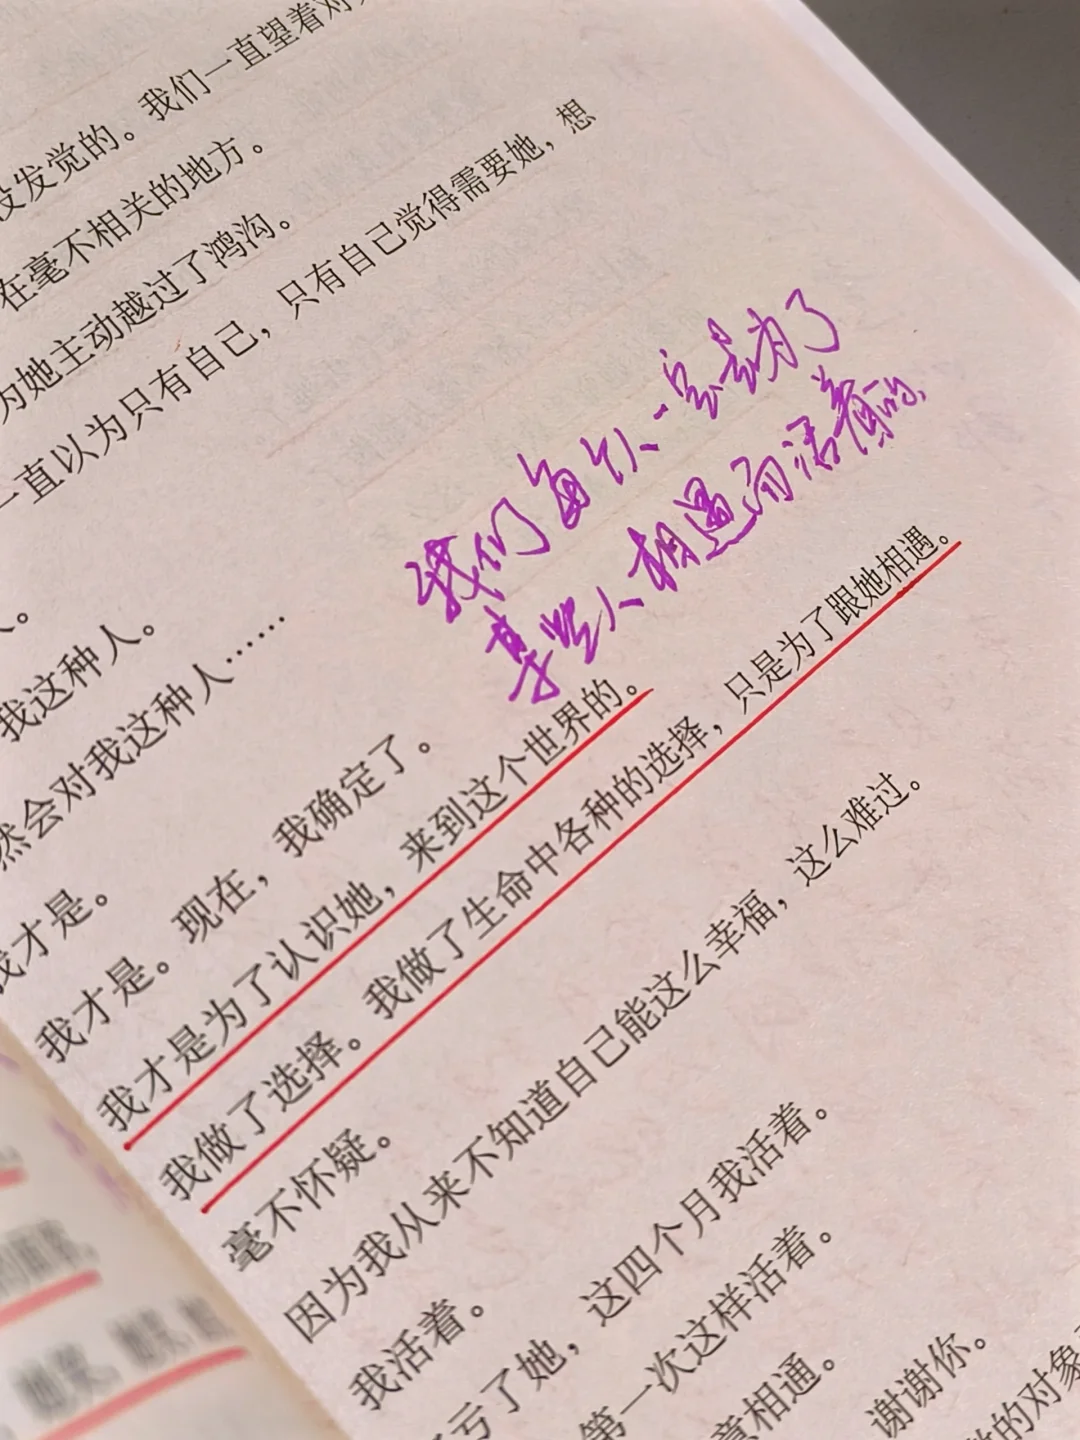 没发觉的。我们一直望着对
在毫不相关的地方。
为她主动越过了鸿沟。
一直以为只有自己，只有自己觉得需要她，想
我们每个人一定是为了
某些人相遇而活着的
人。
我这种人。
然会对我这种人……
我才是。
我才是。现在，我确定了。
我才是为了认识她，来到这个世界的。
我做了选择。我做了生命中各种的选择，只是为了跟她相遇。
毫不怀疑。
因为我从来不知道自己能这么幸福，这么难过。
我活着。
亏了她，这四个月我活着。
第一次这样活着。
意相通。
谢谢你。
的对象